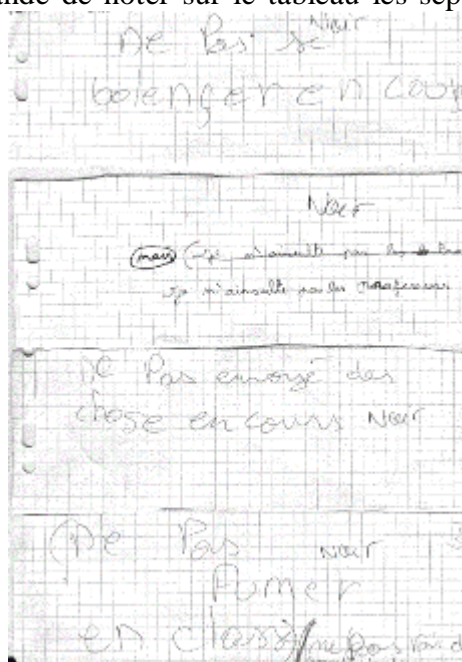 ande de noter sur le tableau les sep
Noir
Ne Pas se
bolenger en cour
Noir
mais
n'ainsulte pas les
n'ainsulte pas les professeurs
ne Pas envoyé des
chose en cours Noir
Ne Pas Noir
Fumer
en classe ne pas